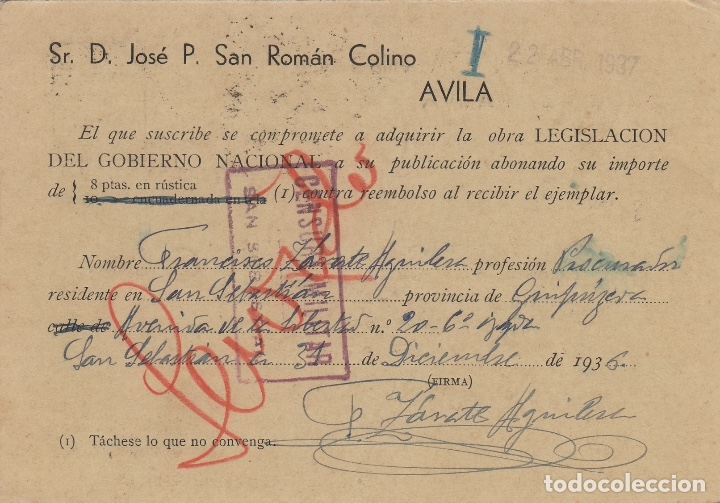 Sr. D. José P. San Román Colino
I
22 ABR. 1937
AVILA
El que suscribe se compromete a adquirir la obra LEGISLACION
DEL GOBIERNO NACIONAL a su publicación abonando su importe
de { 8 ptas. en rústica
10 — encuadernada en tela (1) contra reembolso al recibir el ejemplar.
CENSURA MILITAR
SAN SEBASTIAN
Nombre Francisco Zárate Aguilera profesión Procurador
residente en San Sebastián provincia de Guipúzcoa
calle de Avenida de la Libertad n.º 20-6º izqda
San Sebastián a 31 de Diciembre de 1936.
(FIRMA)
F Zárate Aguilera
(1) Táchese lo que no convenga.
todocoleccion.net